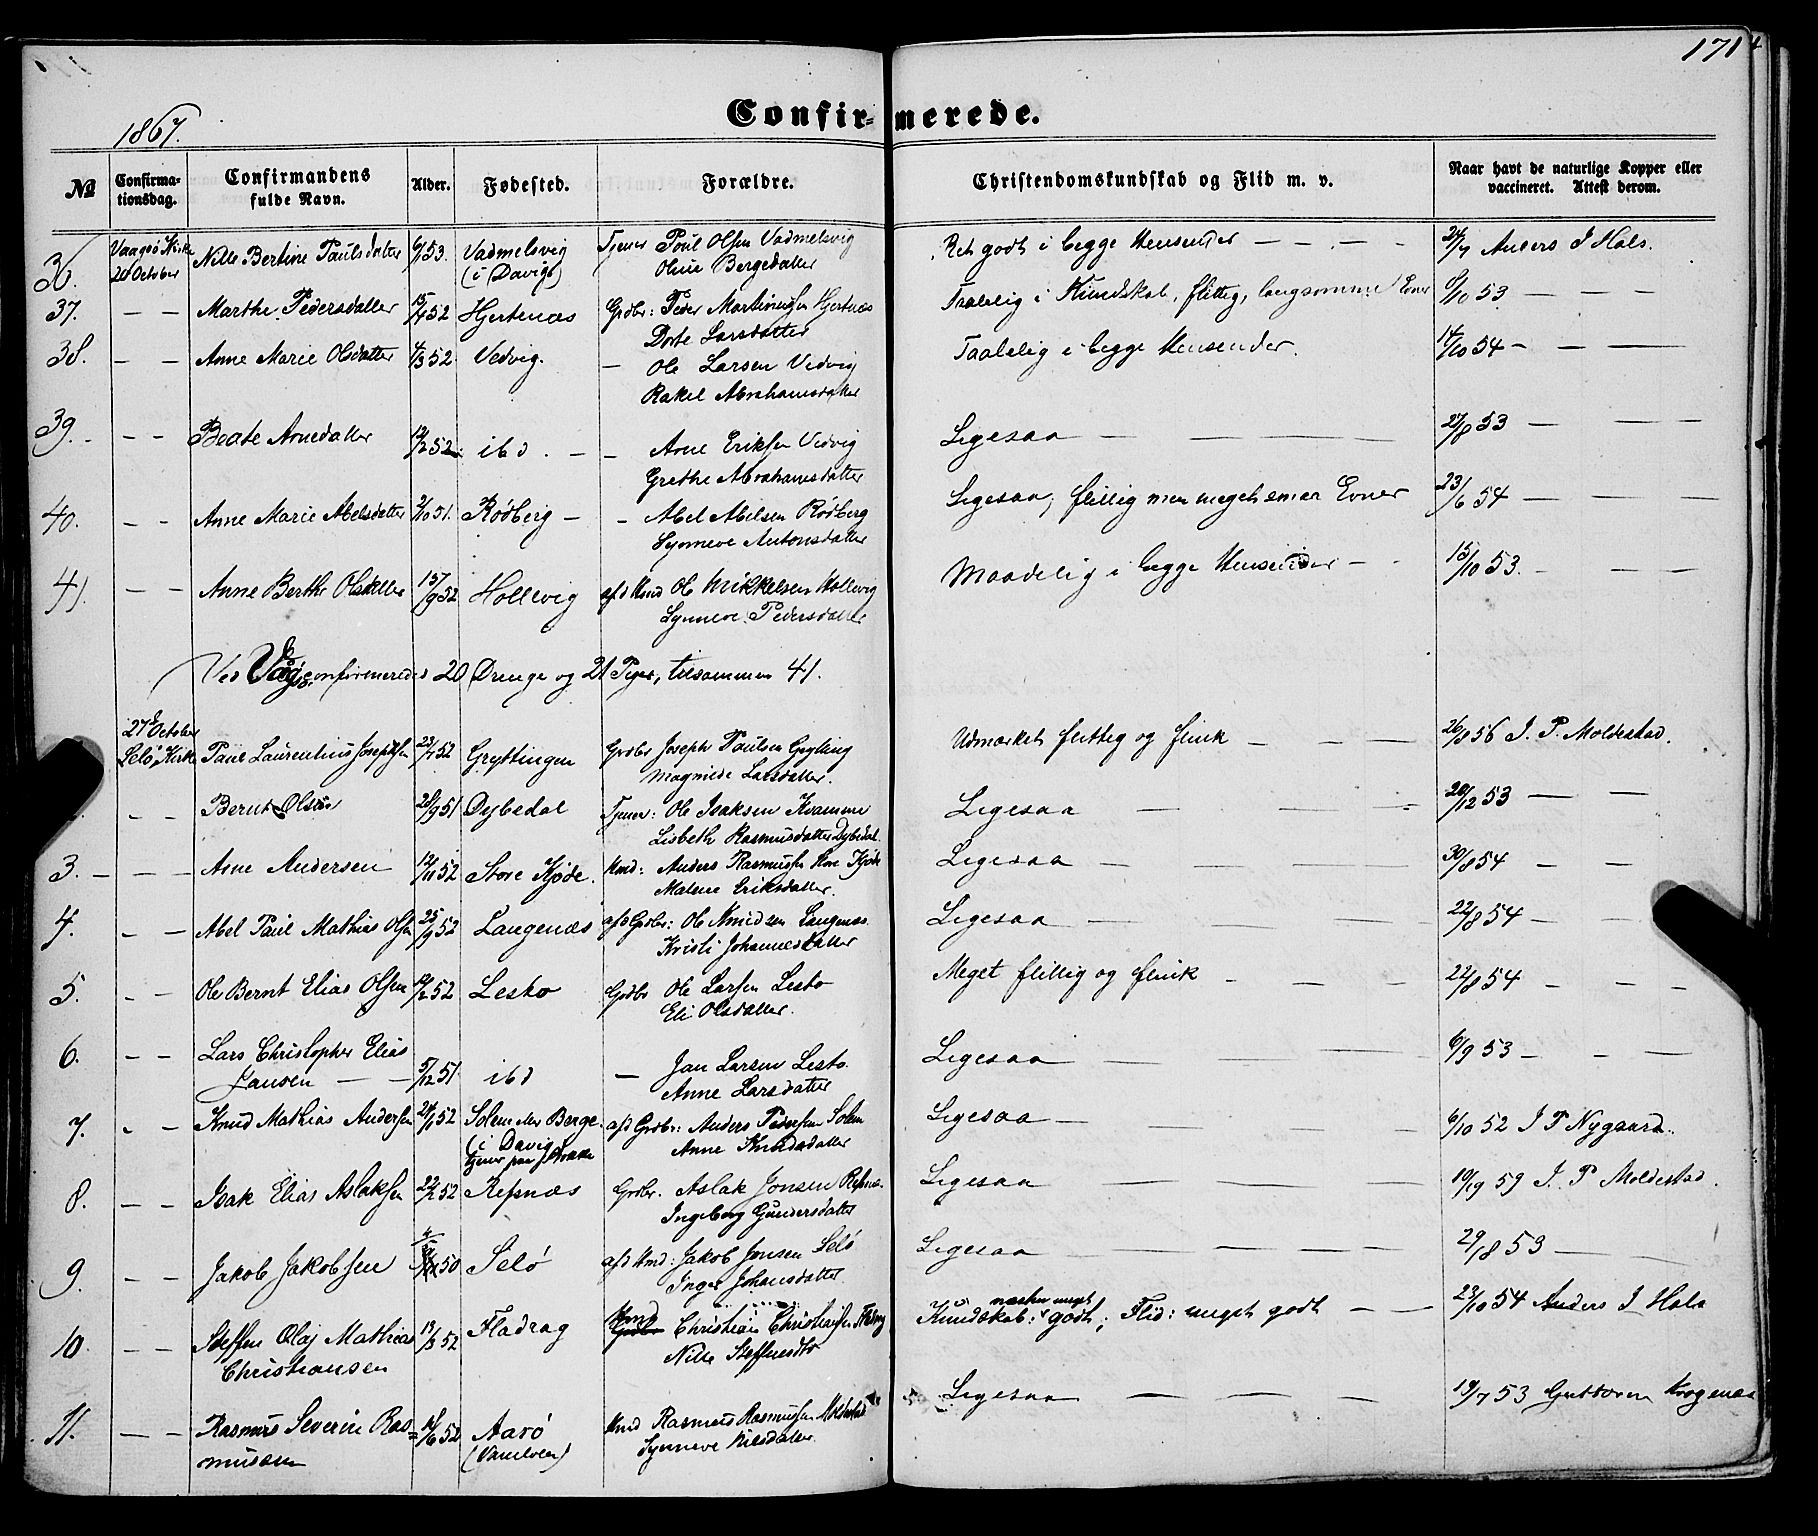 171
Confirmerede.
1867.
№ Confirma-tionsdag. Confirmandens fulde Navn. Alder. Fødested. Forældre. Christendomskundskab og Flid m. v. Naar havt de naturlige Kopper eller vaccineret. Attest derom.
36. Vaagsö Kirke Nille Bertine Paulsdatter 6/1 53. Vadmelsvig Tjener Poul Olsen Vadmelsvig Ret godt i begge Henseender — — — 24/7 Anders J Hals.
20 October (i Davigs) Oline Bergedatter
37. — — Marthe Pedersdatter 15/4 52 Hjertenæs Grdbr: Peder Martinusen Hjertnæs Taalelig i Kundskab, flittig, langsomme Evner 6/10 53 — — —
Dorte Larsdatter
38. — — Anne Marie Olsdatter 4/3 52. Vedvig. — Ole Larsen Vedvig Taalelig i begge Henseender. 14/10 54 — — —
Rakel Abrahamsdatter
39. — — Beate Arnedatter 12/2 52 ibd. — — Arne Eriksen Vedvig Ligesaa — — — — 27/8 53 — — —
Grethe Abrahamsdatter
40. — — Anne Marie Abelsdatter 2/10 51. Rödberg — — Abel Abelsen Rödberg Ligesaa, flittig men meget smaa Evner 23/6 54 — — —
Synneve Antonsdatter
41. — — Anne Berthe Olsdatter 15/9 52 Hollevig afd Hmd Ole Mikkelsen Hollevig Maadelig i begge Henseender — - 15/10 53. — — —
Synneve Pedersdatter
Ved Vågsö confirmeredes 20 Drenge og 21 Piger, tilsammen 41.
27de October
Selö Kirke Paul Laurentius Josephsen 23/7 52 Gryttingen Grdbr Joseph Paulsen Grytting Udmærket flittig og flink — — — 26/8 56 J. P. Moldestad.
Magnilde Larsdatter.
— — Bernt Olsen 28/9 51 Dybedal Tjener: Ole Isaksen Kvamme Ligesaa — — — 20/12 53 — —
Lisbeth Rasmusdatter Dybedal
3. — — — Arne Andersen 12/11 52 Store Hjöde. Hmd: Anders Rasmusen Hjöde Ligesaa — — — — 30/8 54 — —
Malene Eriksdatter.
4. — — Abel Paul Mathias Olsen 25/9 52 Langenæs afd Grdbr: Ole Knudsen Langenæs Ligesaa — — — — 22/8 54 — —
Kristi Johannesdatter
5. — — Ole Bernt Elias Olsen 52 Lesto Grdbr Ole Larsen Lesto Meget flittig og flink - — — 22/8 54 — — —
Eli Olsdatter.
6. — — Lars Christopher Elias
Jansen — — 5/12 51 ibd — Jan Larsen Lesto. Ligesaa — — — — 6/9 53 — - —
Anne Larsdatter
7. - — Knud Mathias Andersen 52 Solem eller Berge afd Grdbr: Anders Pedersen Solem Ligesaa — — — — 6/10 52 J P Nygaard.
(i Davig) Anne Knudsdatter
tjener paa
8. — — Isak Elias Aslaksen 22/2 52 Refsnæs Grdbr. Aslak Jonsen Refsnæs Ligesaa — — — — 59 J. P Moldestad.
Ingeborg Gundersdatter
9. — — Jakob Jakobsen 50 Selö afd Hmd: Jakob Jonsen Selö Ligesaa — — — — 29/8 53 —
Inger Johansdatter
10. — — Steffen Olaj Mathias 13/3 52 Fladrag Hmd Christian Christiansen Kundskab: næsten meget godt; Flid: meget godt — — 23/10 54 Anders J Hals
Christiansen Nille Steffensdtr
11. — — Rasmus Severin Ras- 52 Aarö Hmd Rasmus Rasmusen Moldestad Ligesaa — — — — 19/7 53 Guttorm
musen (Vanelven) Synneve Nilsdatter.